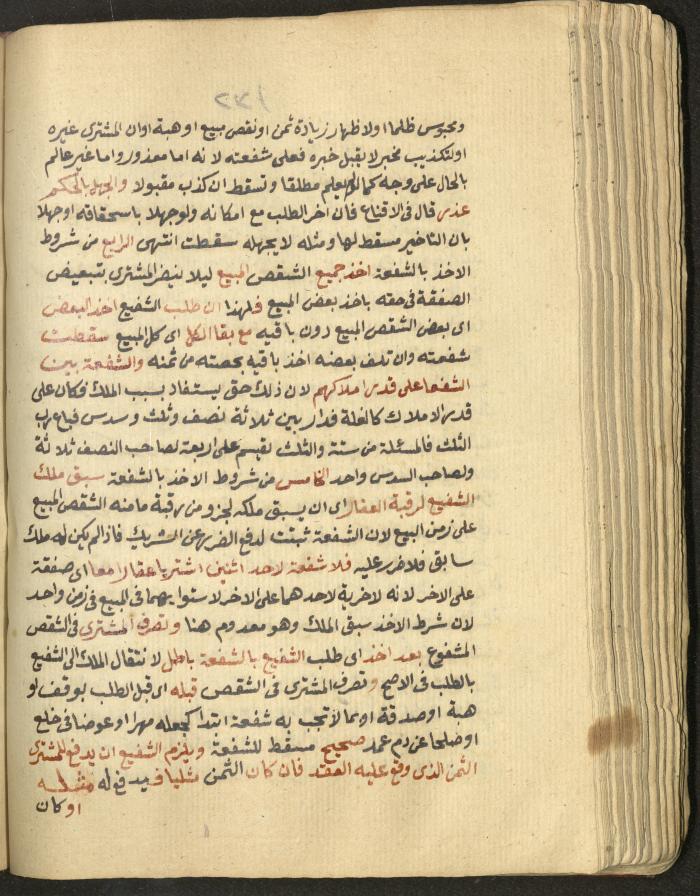 ١٧٢
ومحبوس ظلما اولاظهار زيادة ثمن اونقص مبيع اوهبة اوان المشترى غيره
اولتكذيب مخبر لا يقبل خبره فعلى شفعته لانه اما معذور واما غير عالم
بالحال على وجه كما لو لم يعلم مطلقا وتسقط ان كذب مقبولا والجهل بالحكم
عذر قال فى الاقناع فان اخر الطلب مع امكانه ولو جهلا باستحقاقه او جهلا
بان التاخير مسقط لها ومثله لا يجهله سقطت انتهى الرابع من شروط
الاخذ بالشفعة اخذ جميع الشقص المبيع ليلا ينضر المشترى بتبعيض
الصفقة فى حقه باخذ بعض المبيع فلهذا ان طلب الشفيع اخذ البعض
اى بعض الشقص المبيع دون باقيه مع بقا الكل اى كل المبيع سقطت
شفعته وان تلف بعضه اخذ باقيه بحصته من ثمنه والشفعة بين
الشفعا على قدر املاكهم لان ذلك حق يستفاد بسبب الملك فكان على
قدر الاملاك كالغلة فدار بين ثلاثة نصف وثلث وسدس فباع رب
الثلث فالمسئلة من ستة والثلث يقسم على اربعة لصاحب النصف ثلاثة
ولصاحب السدس واحد الخامس من شروط الاخذ بالشفعة سبق ملك
الشفيع لرقبة العقار اى ان يسبق ملكه لجزو من رقبة ما منه الشقص المبيع
على زمن البيع لان الشفعة ثبتت لدفع الضرر عن الشريك فاذا لم يكن له ملك
سابق فلا ضرر عليه فلا شفعة لاحد اثنين اشتريا عقارا معا اى صفقة
على الاخر لانه لا مزية لاحدهما على الاخر لاستوايهما فى المبيع فى زمن واحد
لان شرط الاخذ سبق الملك وهو معدوم هنا وتصرف المشترى فى الشقص
المشفوع بعد اخذ اى طلب الشفيع بالشفعة باطل لانتقال الملك الى الشفيع
بالطلب فى الاصح وتصرف المشترى فى الشقص قبله اى قبل الطلب بوقف او
هبة او صدقة او بما لا تجب به شفعة ابتدا كجعله مهرا او عوضا فى خلع
او صلحا عن دم عمد صحيح مسقط للشفعة ويلزم الشفيع ان يدفع للمشترى
الثمن الذى وقع عليه العقد فان كان الثمن مثليا فيدفع له مثله
او كان